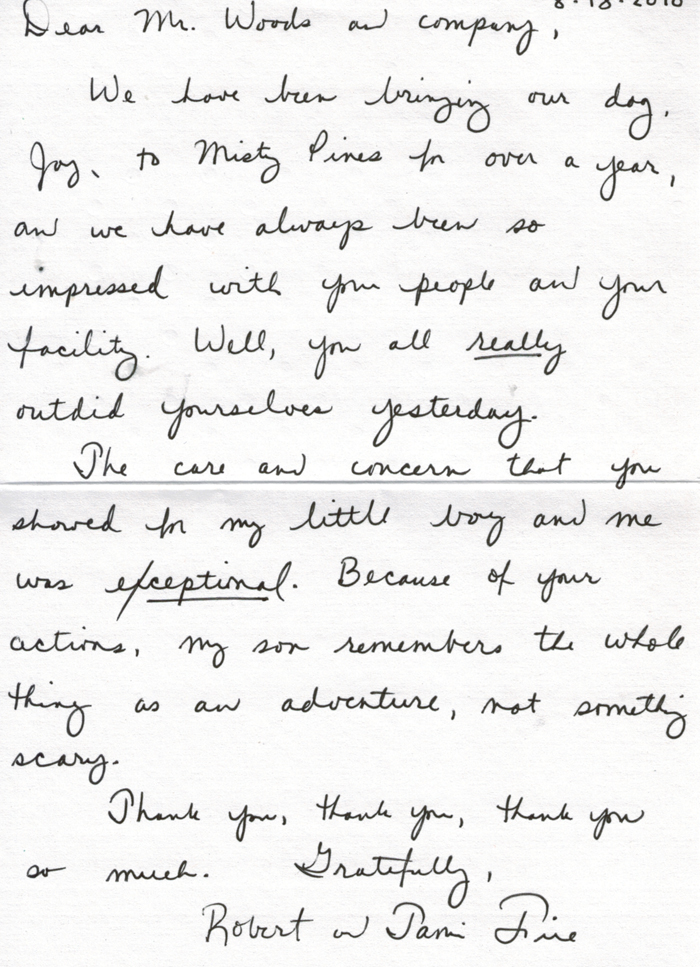 8-18-2010
Dear Mr. Woods and company,
We have been bringing our dog,
Joy, to Misty Pines for over a year,
and we have always been so
impressed with your people and your
facility. Well, you all really
outdid yourselves yesterday.
The care and concern that you
showed for my little boy and me
was exceptional. Because of your
actions, my son remembers the whole
thing as an adventure, not something
scary.
Thank you, thank you, thank you
so much. Gratefully,
Robert and Tami